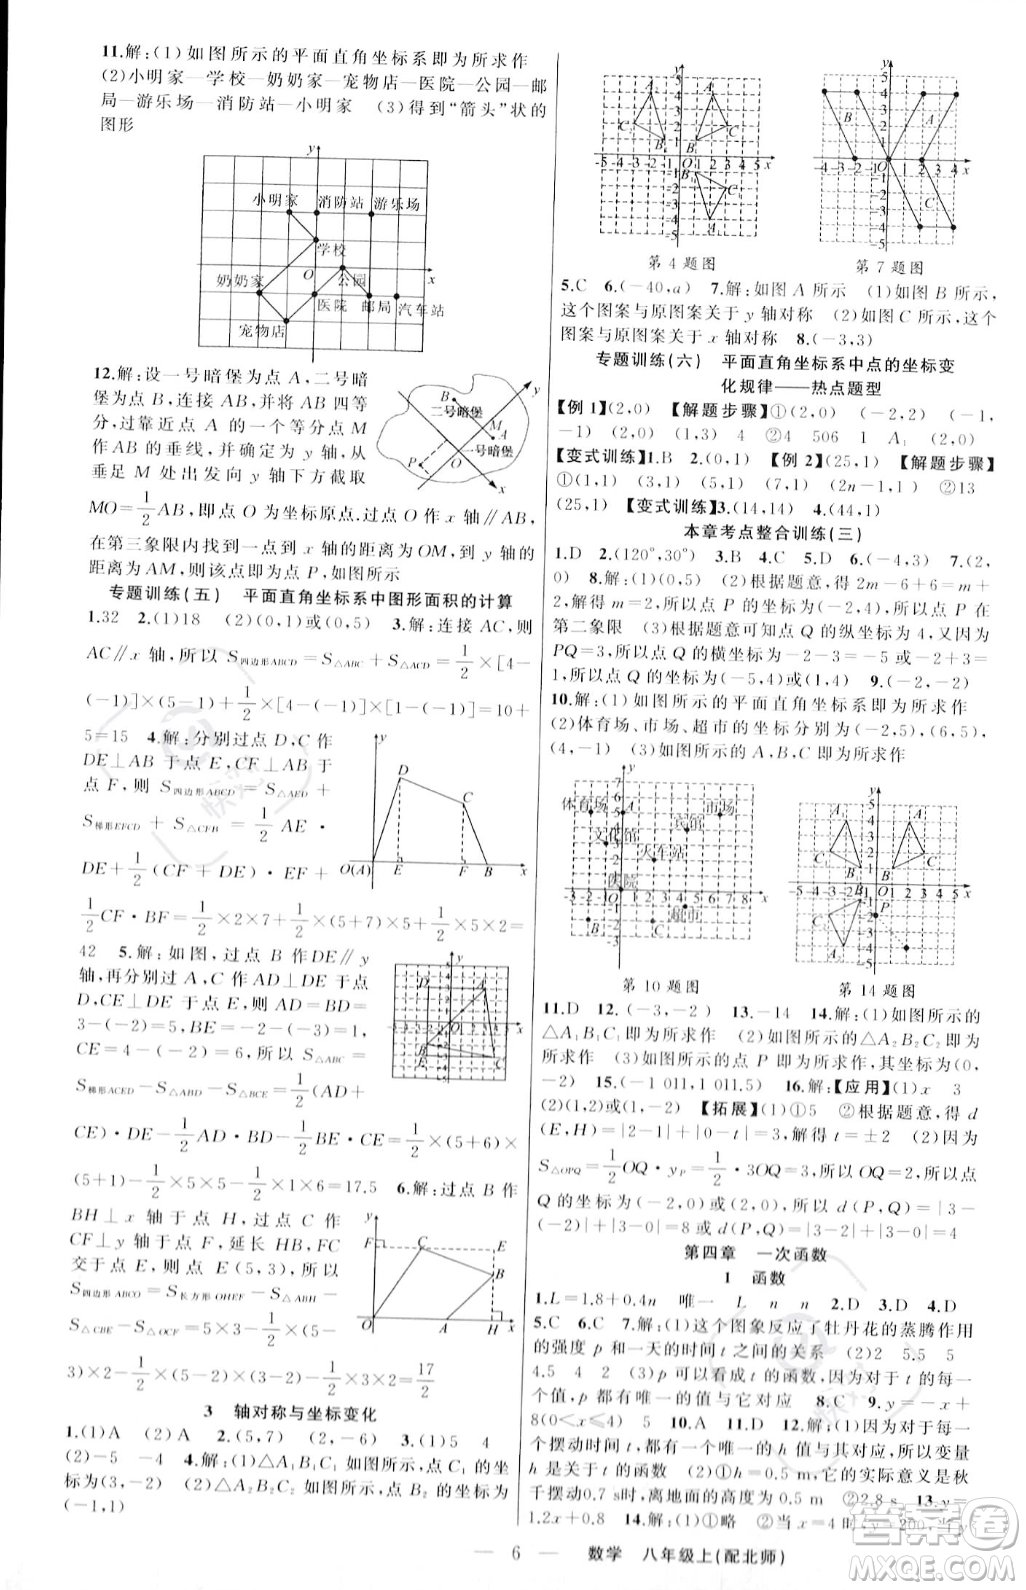 11.解:(1)如图所示的平面直角坐标系即为所求作
(2)小明家—学校—奶奶家—宠物店—医院—公园—邮
局—游乐场—消防站—小明家 (3)得到“箭头”状的
图形
小明家 消防站 游乐场
学校
奶奶家 公园
医院 邮局 汽车站
宠物店
12.解:设一号暗堡为点 A,二号暗
堡为点 B,连接 AB,并将 AB 四等
分,过靠近点 A 的一个等分点 M
作 AB 的垂线,以点 M 为起点,从
垂足 M 处出发向 y 轴下方截取
MO=1/2AB,即点 O 为坐标原点.过点 O 作 x 轴∥AB,
二号暗堡
一号暗堡
在第三象限内找一点到 x 轴的距离为OM,到 y 轴的
距离为 AM,则该点即为点 P,如图所示
专题训练(五) 平面直角坐标系中图形面积的计算
1.32 2.(1)18 (2)(0,1)或(0,5) 3.解:连接 AC,则
AC∥x 轴,所以 S四边形ABCD=S△ABC+S△ACD=1/2×[4-
(-1)]×(5-1)+1/2×[4-(-1)]×[1-(-1)]=10+
5=15 4.解:分别过点 D,C 作
DE⊥AB 于点 E,CF⊥AB 于
点 F,则 S四边形ABCD=S△ADE+
S梯形EFCD+S△CFB=1/2AE·
DE+1/2(CF+DE)·EF+
1/2CF·BF=1/2×2×7+1/2×(5+7)×5+1/2×2×5=
42 5.解:如图,过点 B 作DE∥y
轴,再分别过 A,C 作 AD⊥DE 于点
D,CE⊥DE 于点 E,则AD=BD=
3-(-2)=5,BE=-2-(-3)=1,
CE=4-(-2)=6,所以 S△ABC=
S梯形ACED-S△ABD-S△BCE=1/2(AD+
CE)·DE-1/2AD·BD-1/2BE·CE=1/2×(5+6)×
(5+1)-1/2×5×5-1/2×6×1=17.5 6.解:过点 B 作
BH⊥x 轴于点 H,过点 C 作
CF⊥y轴于点 F,延长 HB,FC
交于点 E,则点 E(5,3),所以
S四边形ABCO=S长方形OHEF-S△ABH-
S△CBE-S△OCF=5×3-1/2×(5-
3)×2-1/2×3×1-1/2×2×3=17/2
3 轴对称与坐标变化
1.(1)A (2)A 2.(5,7) (2,-6) 3.(1)5 4
(2)-5 -4 4.解:(1)△A₁B₁C₁如图所示,点 C₁ 的
坐标为(3,-2) (2)△A₂B₂C₂如图所示,点 B₂ 的坐标为
(-1,1)
第 4 题图 第 7 题图
5.C 6.(-40,a) 7.解:如图 A 所示 (1)如图 B 所示,
这个图案与原图案关于 y 轴对称 (2)如图 C 所示,这个
图案与原图案关于 x 轴对称 8.(-3,3)
专题训练(六) 平面直角坐标系中点的坐标变
化规律——热点题型
【例 1】(2,0) 【解题步骤】①(2,0) (-2,2) (-1,
-1) (2,0) (1,3) 4 ②4 506 1 A₁ (2,0)
【变式训练】1.B 2.(0,1) 【例 2】(25,1) 【解题步骤】
①(1,1) (3,1) (5,1) (7,1) (2n-1,1) ②13
(25,1) 【变式训练】3.(14,14) 4.(44,1)
本章考点整合训练(三)
1.D 2.(120°,30°) 3.B 4.C 5.D 6.(-4,3) 7.(2,
0) 8.解:(1)(6,0) (2)根据题意,得 2m-6+6=m
+2,解得 m=2,所以点 P 的坐标为(-2,4),所以点 P 在
第二象限 (3)根据题意可知点 Q 的纵坐标为 4,又因为
PQ=3,所以点 Q 的横坐标为-2-3=-5 或-2+3=
1,所以点 Q 的坐标为(-5,4)或(1,4) 9.(-2,0)
10.解:(1)如图所示的平面直角坐标系即为所求作
(2)体育场、市场、超市的坐标分别为(-2,5),(6,5),
(4,-1) (3)如图所示的 A,B,C 即为所求作
体育场 市场
文化馆 宾馆
火车站
医院
超市
第 10 题图 第 14 题图
11.D 12.(-3,-2) 13.-14 14.解:(1)如图所示的
△A₁B₁C₁即为所求作 (2)如图所示的△A₂B₂C₂即为
所求作 (3)如图所示的点 P 即为所求作,其坐标为(0,
-2) 15.(-1 011,1 011.5) 16.解:【应用】(1)x 3
(2)(1,2)或(1,-2) 【拓展】(1)①5 ②根据题意,得 d
(E,H)=|2-1|+|0-t|=3,解得 t=±2 (2)因为
S△OPQ=1/2OQ·yP=1/2OQ×3=3,所以OQ=2,所以点
Q 的坐标为(-2,0)或(2,0),所以 d(P,Q)=|3-
(-2)|+|3-0|=8或d(P,Q)=|3-2|+|3-0|=4
第四章 一次函数
1 函数
1.L=1.8+0.4n 唯一 L n n 2.D 3.D 4.D
5.C 6.C 7.解:(1)这个图象反应了牡丹花的蒸腾作用
的强度 p 和一天的时间 t 之间的关系 (2)2 5.5 5
4.5 4 2 (3)p 可以看成 t 的函数,因为对于 t 的每一
个值,p 都有唯一的值与它对应 8.C 9.y=-x+
8(0<x≤4) 5 10.A 11.D 12.解:(1)因为对于每一
个摆动时间 t,都有一个唯一的 h 值与其对应,所以变量
h 是关于 t 的函数 (2)①h=0.5 m,它的实际意义是秋
千摆动0.7 s时,离地面的高度为 0.5 m ②2.8 s 13.y=
1.2x+0.8 14.解:(1)①略 ②当 x=4时,y=200,当 y
— 6 — 数学 八年级上(配北师)
答案圈
MXQE.COM